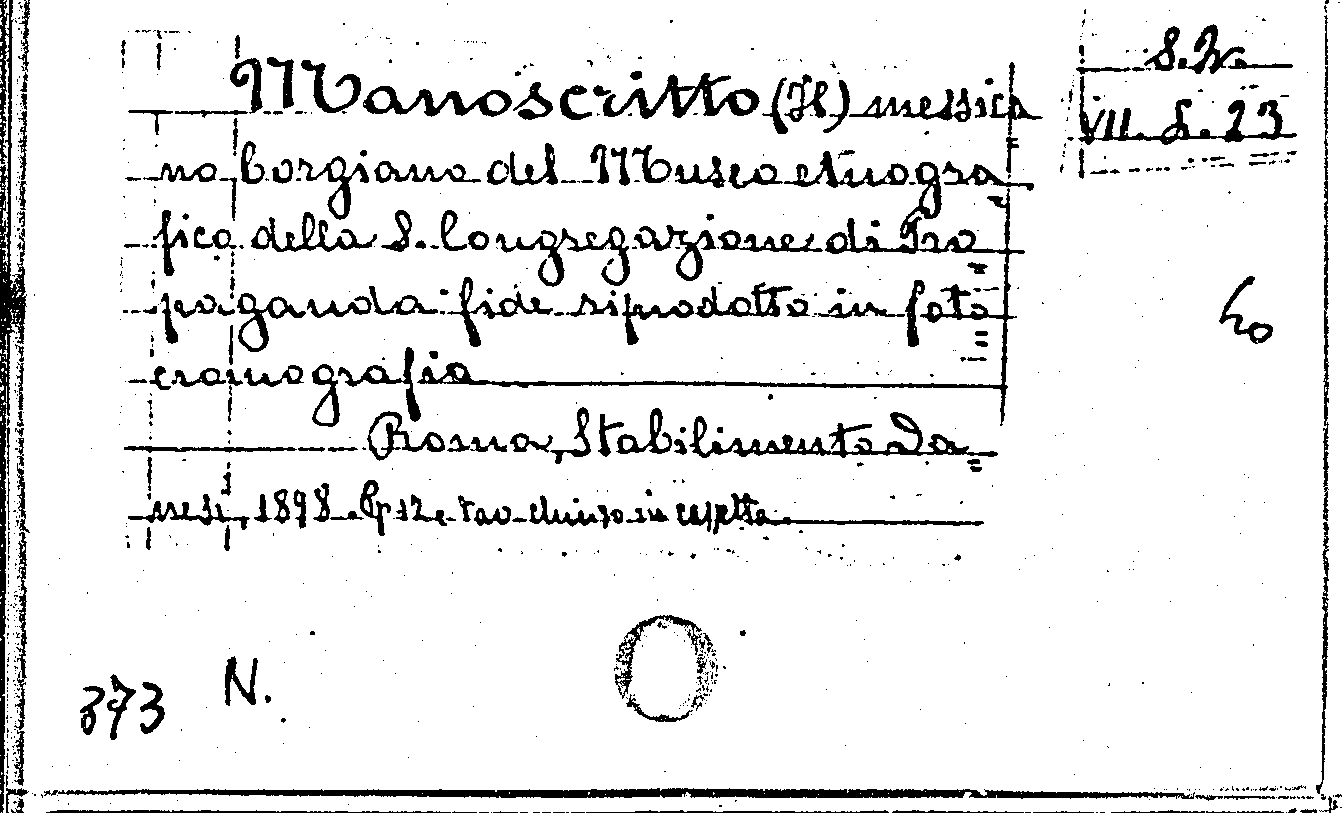 S. Tr.
VII. L. 23
Manoscritto (Il) messica
no borgiano del Museo etnogra
fico della S. Congregazione di Pro
paganda fide riprodotto in foto
cromografia
Roma, Stabilimento Da
nesi, 1898. pp 12 e tav chiuso in
373 N.